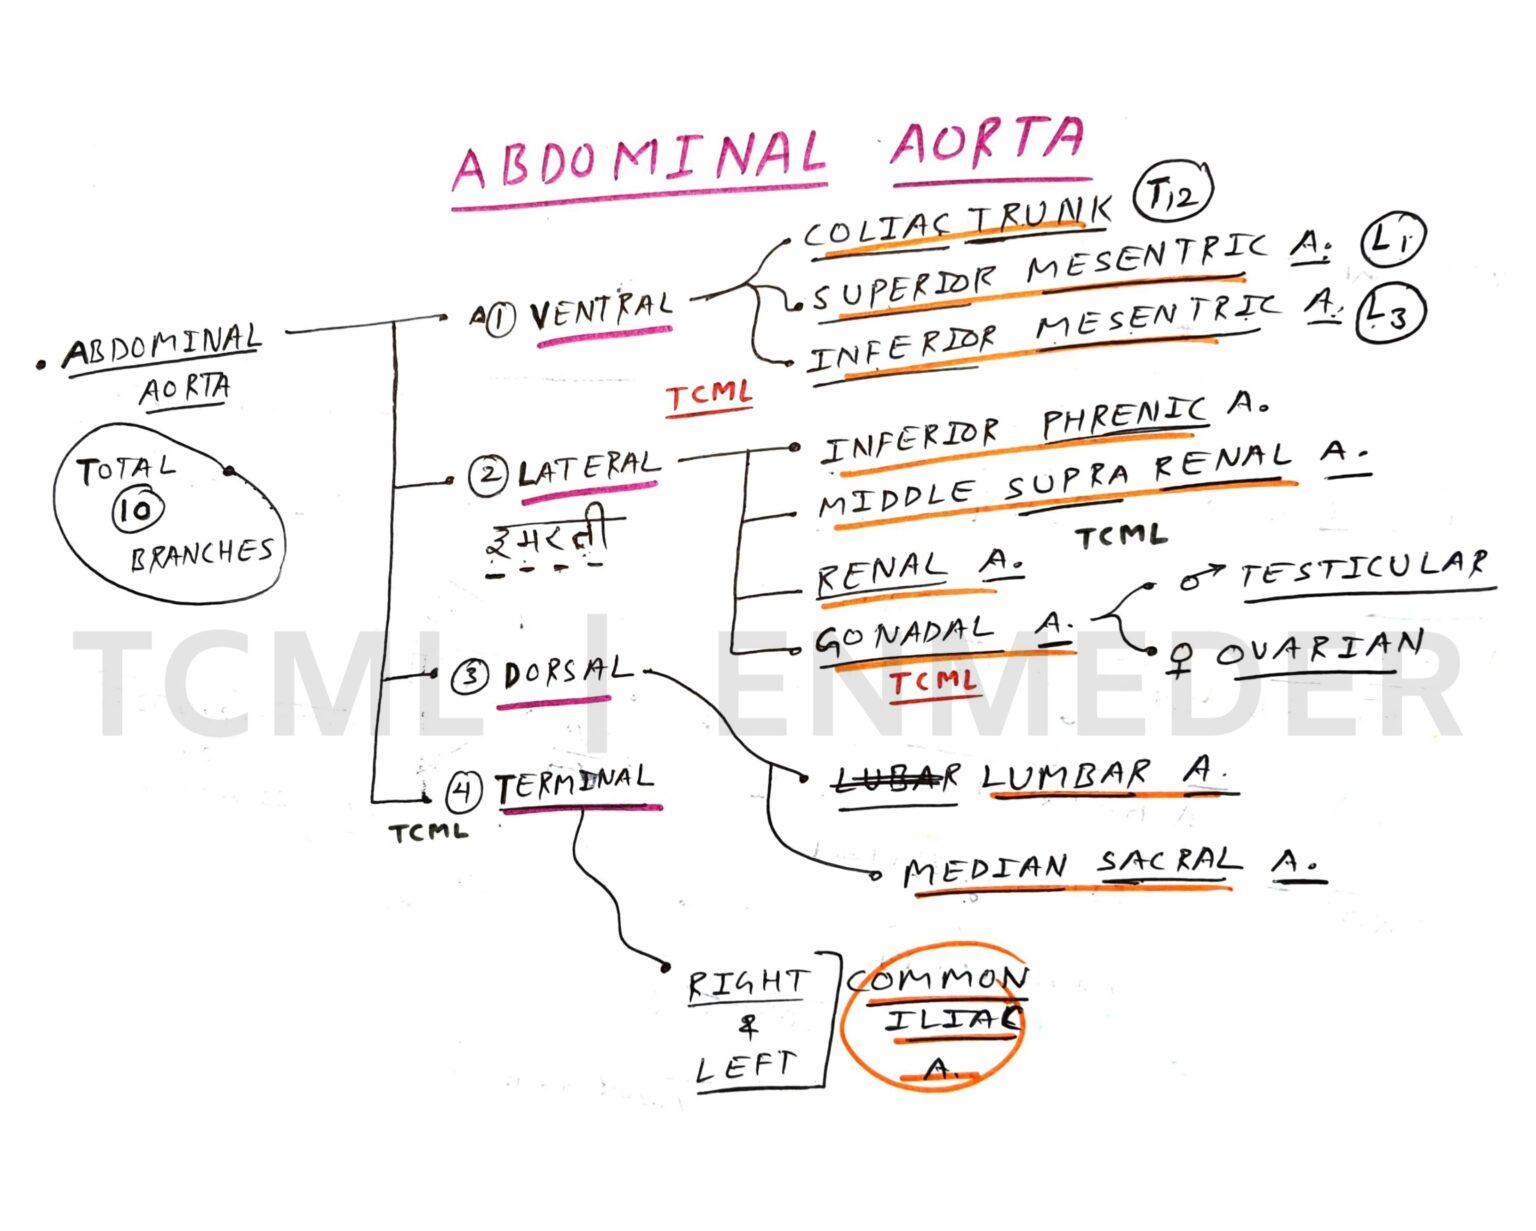 ABDOMINAL AORTA
• ABDOMINAL
AORTA
TOTAL
10
BRANCHES
① VENTRAL
COLIAC TRUNK T12
SUPERIOR MESENTRIC A. L1
INFERIOR MESENTRIC A. L3
TCML
② LATERAL
इमरती
INFERIOR PHRENIC A.
MIDDLE SUPRA RENAL A.
TCML
RENAL A.
GONADAL A.
♂ TESTICULAR
♀ OVARIAN
TCML
TCML | ENMEDER
③ DORSAL
LUBAR LUMBAR A.
MEDIAN SACRAL A.
④ TERMINAL
TCML
RIGHT
&
LEFT
COMMON
ILIAC
A.